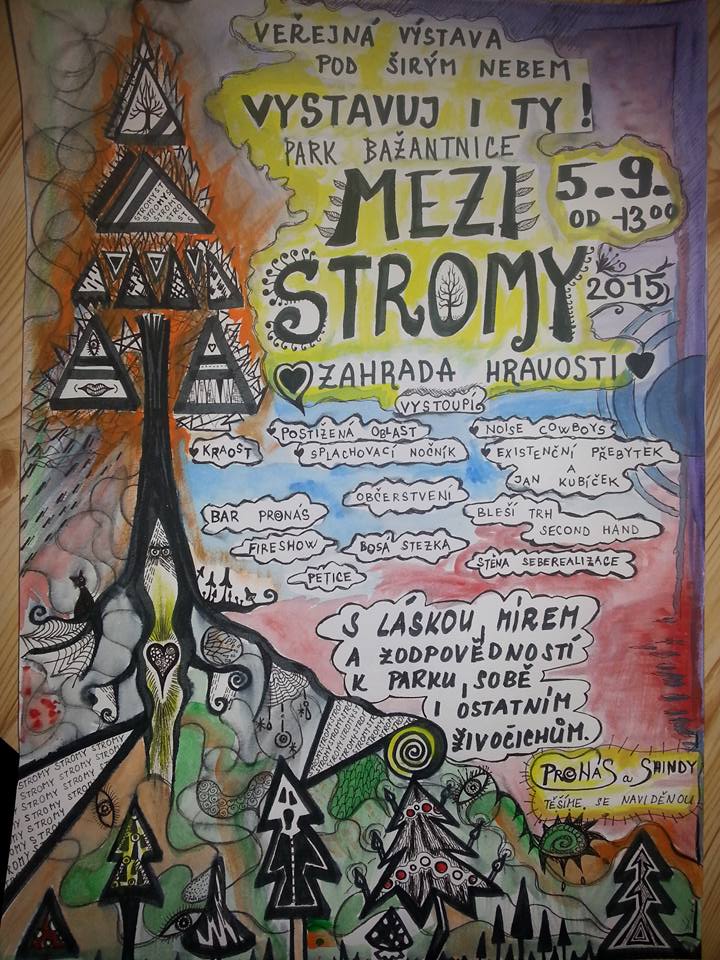 VEŘEJNÁ VÝSTAVA
POD ŠIRÝM NEBEM
VYSTAVUJ I TY!
PARK BAŽANTNICE
MEZI
STROMY
5.9.
OD 13⁰⁰
2015
ZAHRADA HRAVOSTI
VYSTOUPÍ
KRAOST
POSTIŽENÁ OBLAST
SPLACHOVACÍ NOČNÍK
NOISE COWBOYS
EXISTENČNÍ PŘEBYTEK
A
JAN KUBÍČEK
OBČERSTVENÍ
BAR PRONÁS
BLEŠÍ TRH
SECOND HAND
FIRESHOW
BOSÁ STEZKA
STĚNA SEBEREALIZACE
PETICE
S LÁSKOU, MÍREM
A ZODPOVĚDNOSTÍ
K PARKU, SOBĚ
I OSTATNÍM
ŽIVOČICHŮM.
PRONÁS a SHINDY
TĚŠÍME SE NAVIDĚNOU
STROMY STROMY STROMY
STROMY STROMY